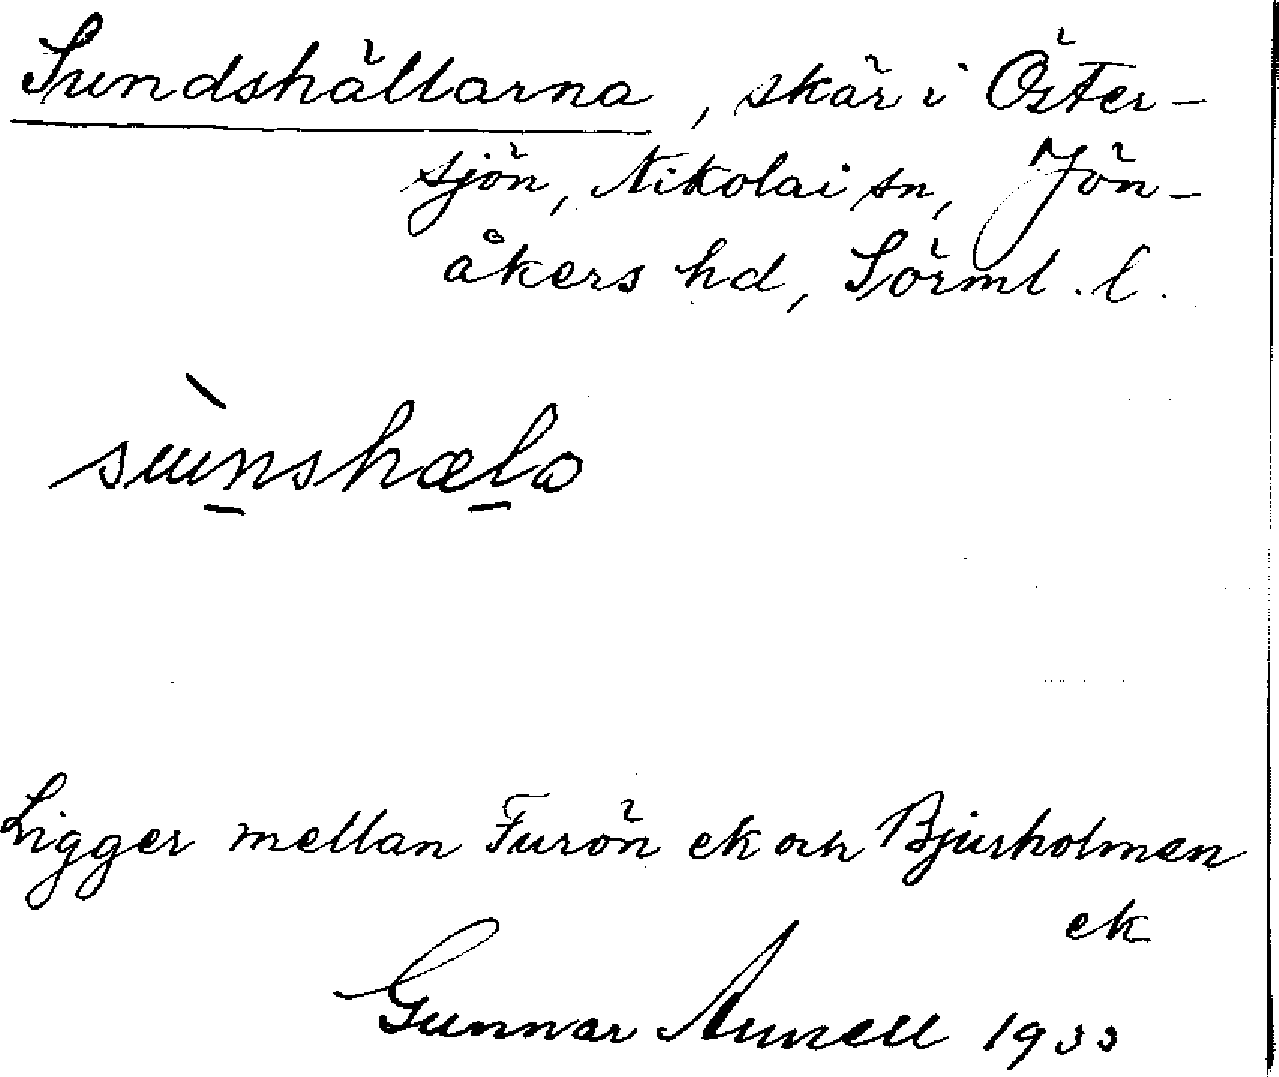 Sundshällarna, skär i Öster-
sjön, Nikolai sn, Jön-
åkers hd, Sörml. l.
sùn̠shæl̠a
Ligger mellan Furön ek och Bjurholmen
ek
Gunnar Arnell 1933